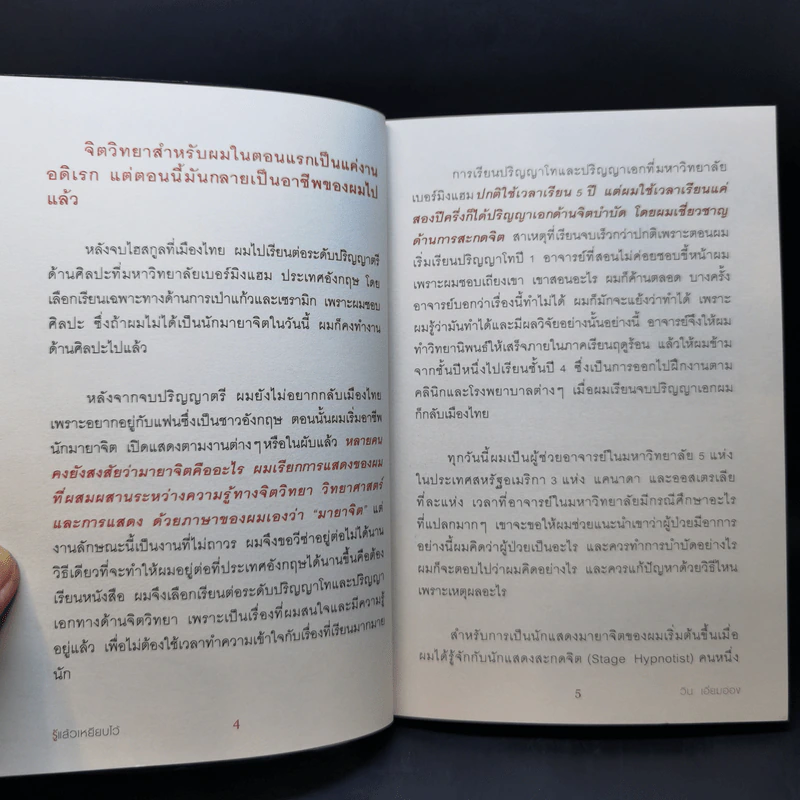 จิตวิทยาสำหรับผมในตอนแรกเป็นแค่งาน
อดิเรก แต่ตอนนี้มันกลายเป็นอาชีพของผมไป
แล้ว
หลังจบไฮสกูลที่เมืองไทย ผมไปเรียนต่อระดับปริญญาตรี
ด้านศิลปะที่มหาวิทยาลัยเบอร์มิงแฮม ประเทศอังกฤษ โดย
เลือกเรียนเฉพาะทางด้านการเป่าแก้วและเซรามิก เพราะผมชอบ
ศิลปะ ซึ่งถ้าผมไม่ได้เป็นนักมายาจิตในวันนี้ ผมก็คงทำงาน
ด้านศิลปะไปแล้ว
หลังจากจบปริญญาตรี ผมยังไม่อยากกลับเมืองไทย
เพราะอยากอยู่กับแฟนซึ่งเป็นชาวอังกฤษ ตอนนั้นผมเริ่มอาชีพ
นักมายาจิต เปิดแสดงตามงานต่างๆหรือในผับแล้ว หลายคน
คงยังสงสัยว่ามายาจิตคืออะไร ผมเรียกการแสดงของผม
ที่ผสมผสานระหว่างความรู้ทางจิตวิทยา วิทยาศาสตร์
และการแสดง ด้วยภาษาของผมเองว่า “มายาจิต” แต่
งานลักษณะนี้เป็นงานที่ไม่ถาวร ผมจึงขอวีซ่าอยู่ต่อไม่ได้นาน
วิธีเดียวที่จะทำให้ผมอยู่ต่อที่ประเทศอังกฤษได้นานขึ้นคือต้อง
เรียนหนังสือ ผมจึงเลือกเรียนต่อระดับปริญญาโทและปริญญา
เอกทางด้านจิตวิทยา เพราะเป็นเรื่องที่ผมสนใจและมีความรู้
อยู่แล้ว เพื่อไม่ต้องใช้เวลาทำความเข้าใจกับเรื่องที่เรียนมากมาย
นัก
รู้แล้วเหยียบไว้
4
การเรียนปริญญาโทและปริญญาเอกที่มหาวิทยาลัย
เบอร์มิงแฮม ปกติใช้เวลาเรียน 5 ปี แต่ผมใช้เวลาเรียนแค่
สองปีครึ่งก็ได้ปริญญาเอกด้านจิตบำบัด โดยผมเชี่ยวชาญ
ด้านการสะกดจิต สาเหตุที่เรียนจบเร็วกว่าปกติเพราะตอนผม
เริ่มเรียนปริญญาโทปี 1 อาจารย์ที่สอนไม่ค่อยชอบขี้หน้าผม
เพราะผมชอบเถียงเขา เขาสอนอะไร ผมก็ค้านตลอด บางครั้ง
อาจารย์บอกว่าเรื่องนี้ทำไม่ได้ ผมก็มักจะแย้งว่าทำได้ เพราะ
ผมรู้ว่ามันทำได้และมีผลวิจัยอย่างนั้นอย่างนี้ อาจารย์จึงให้ผม
ทำวิทยานิพนธ์ให้เสร็จภายในภาคเรียนฤดูร้อน แล้วให้ผมข้าม
จากชั้นปีหนึ่งไปเรียนชั้นปี 4 ซึ่งเป็นการออกไปฝึกงานตาม
คลินิกและโรงพยาบาลต่างๆ เมื่อผมเรียนจบปริญญาเอกผม
ก็กลับเมืองไทย
ทุกวันนี้ผมเป็นผู้ช่วยอาจารย์ในมหาวิทยาลัย 5 แห่ง
ในประเทศสหรัฐอเมริกา 3 แห่ง แคนาดา และออสเตรเลีย
ที่ละแห่ง เวลาที่อาจารย์ในมหาวิทยาลัยมีกรณีศึกษาอะไร
ที่แปลกมากๆ เขาจะขอให้ผมช่วยแนะนำเขาว่าผู้ป่วยมีอาการ
อย่างนี้ผมคิดว่าผู้ป่วยเป็นอะไร และควรทำการบำบัดอย่างไร
ผมก็จะตอบไปว่าผมคิดอย่างไร และควรแก้ปัญหาด้วยวิธีไหน
เพราะเหตุผลอะไร
สำหรับการเป็นนักแสดงมายาจิตของผมเริ่มต้นขึ้นเมื่อ
ผมได้รู้จักกับนักแสดงสะกดจิต (Stage Hypnotist) คนหนึ่ง
5
วิน เอี่ยมอ่อง